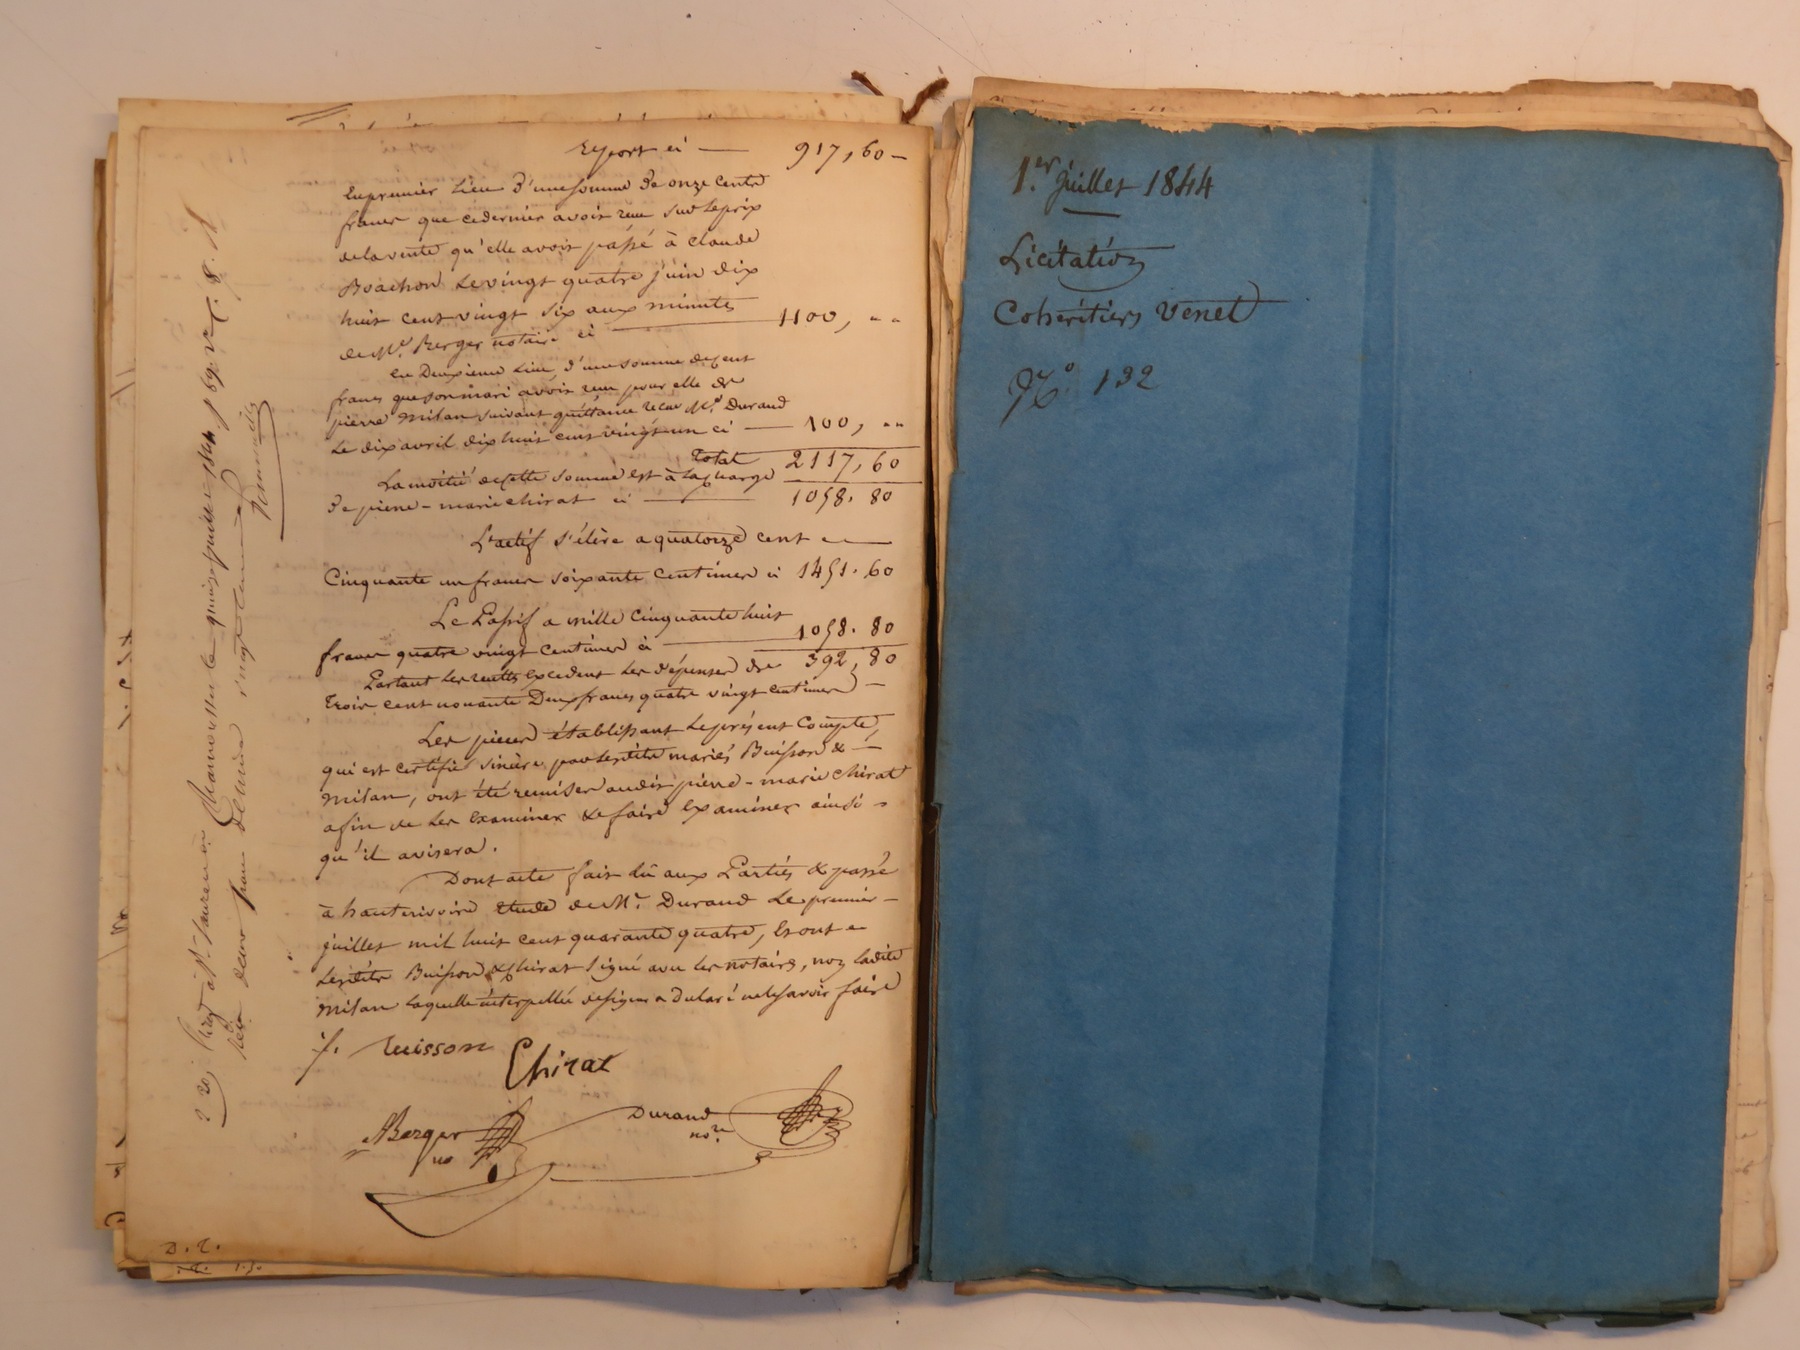 Report ci — 917, 60 —
En premier lieu d'une somme de onze cents
francs que ce dernier avoit reçu sur le prix
de la vente qu'elle avoit passé à Claude
Boachon le vingt quatre juin dix
huit cent vingt six aux minutes
de Me. Berger notaire ci — 1100, " "
en Deuxieme lieu, d'une somme de cent
francs que son mari avoit reçu pour elle de
pierre Milan suivant quittance reçue Me. Durand
le dix avril dix huit cent vingt un ci — 100, " "
Total 2117, 60
La moitié de cette somme est à la charge
de pierre-marie chirat ci — 1058. 80
L'actif s'élève a quatorze cent
Cinquante un francs soixante centimes ci 1451. 60
Le Passif a mille cinquante huit
francs quatre vingt centimes ci — 1058. 80
Partant les recettes excedent les dépenses de 392, 80
Trois cent nonante Deux francs quatre vingt centimes —
Les pieces établissant le présent Compte,
qui est certifié sincère par lesdits mariés Buisson & —
Milan, ont été remises audit pierre-marie chirat
afin de les examiner & faire examiner ainsi
qu'il avisera.
Dont acte fait lû aux Parties & passé
à hauterivoire étude de Me. Durand le premier —
juillet mil huit cent quarante quatre, et ont
lesdits Buisson & chirat signé avec les notaires, non ladite
Milan laquelle interpellée de signer a Déclaré ne le savoir faire
f. Buisson
Chirat
Berger
no
Durand
nore
D. L.
Chamousset le quinze juillet 1844, f° 69. v°
Reçu deux francs
1.er Juillet 1844
Licitation
Cohéritiers Venet
N.° 132